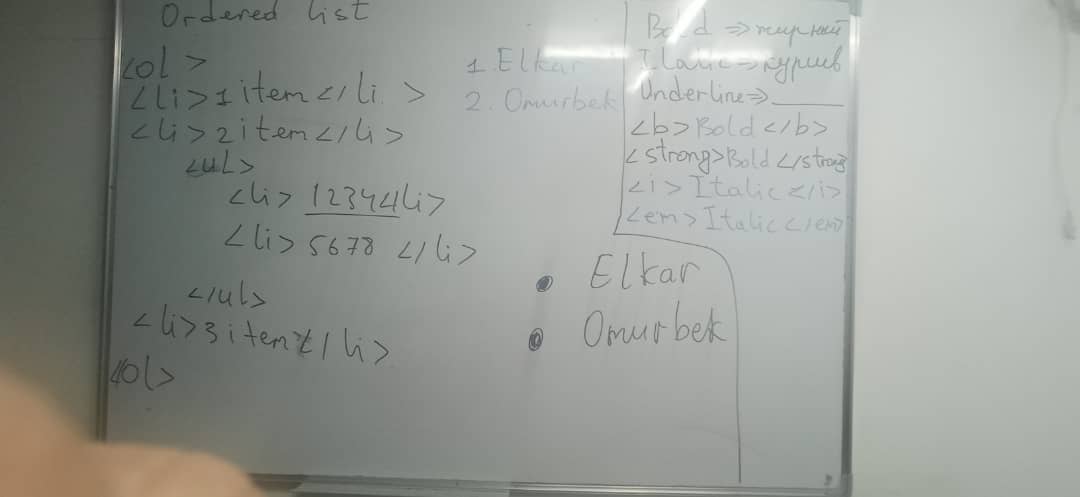 Ordered list
<ol>
<li>1 item</li>
<li>2 item</li>
<ul>
<li>12344li>
<li>5678</li>
</ul>
<li>3 item</li>
</ol>
1. Elkar
2. Omurbek
Bold => жирный
Italic => курсив
Underline => ______
<b>Bold</b>
<strong>Bold</strong>
<i>Italic</i>
<em>Italic</em>
• Elkar
• Omurbek